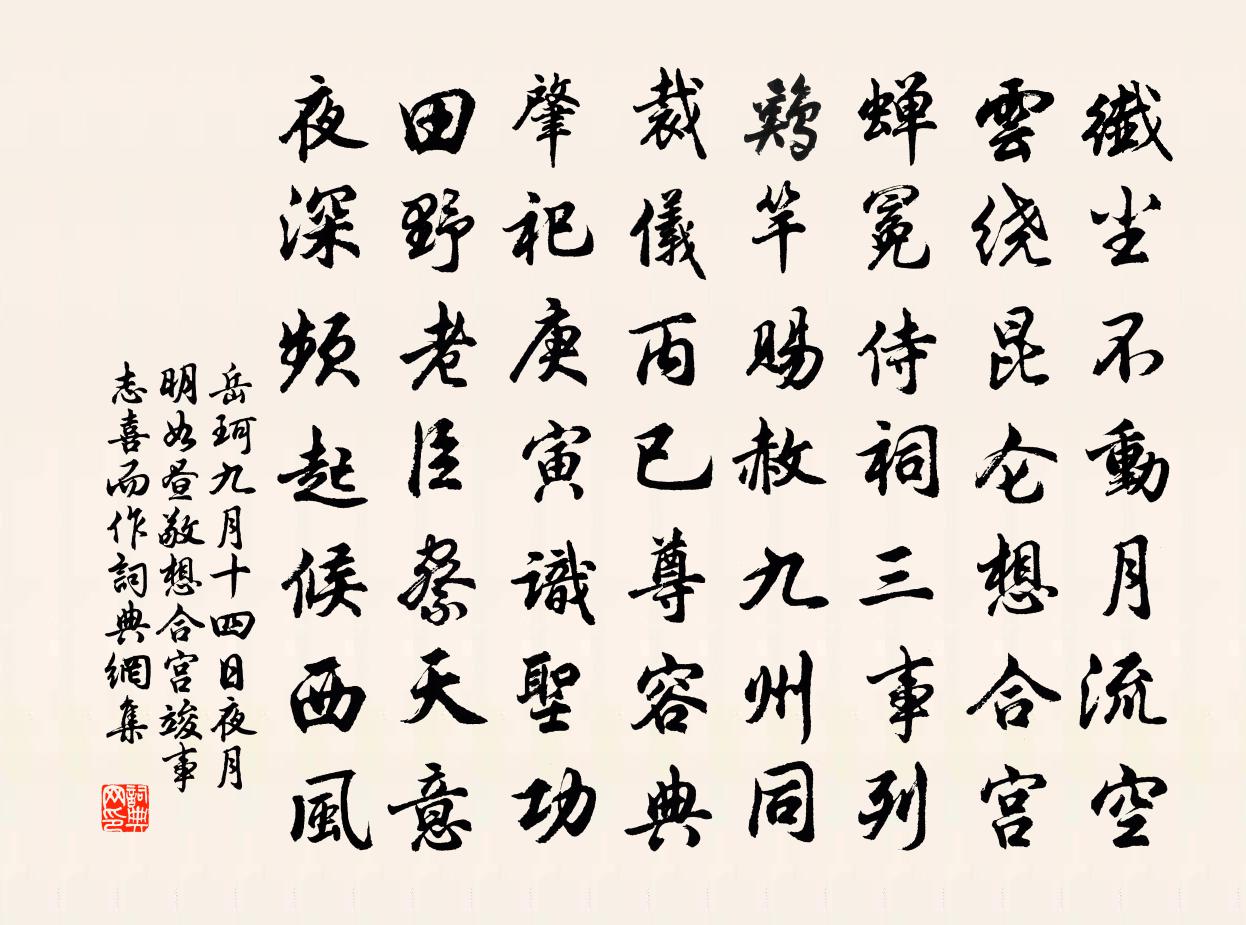 纖尘不動月流空
雲绕昆仑想合宫
蝉冕侍祠三事列
鷄竿賜赦九州同
裁儀丙已尊容典
肇祀庚寅識聖功
田野老臣祭天意
夜深频起候西風
岳珂九月十四日夜月
明如昼敬想合宫竣事
志喜而作詞典網集
詞典
网印